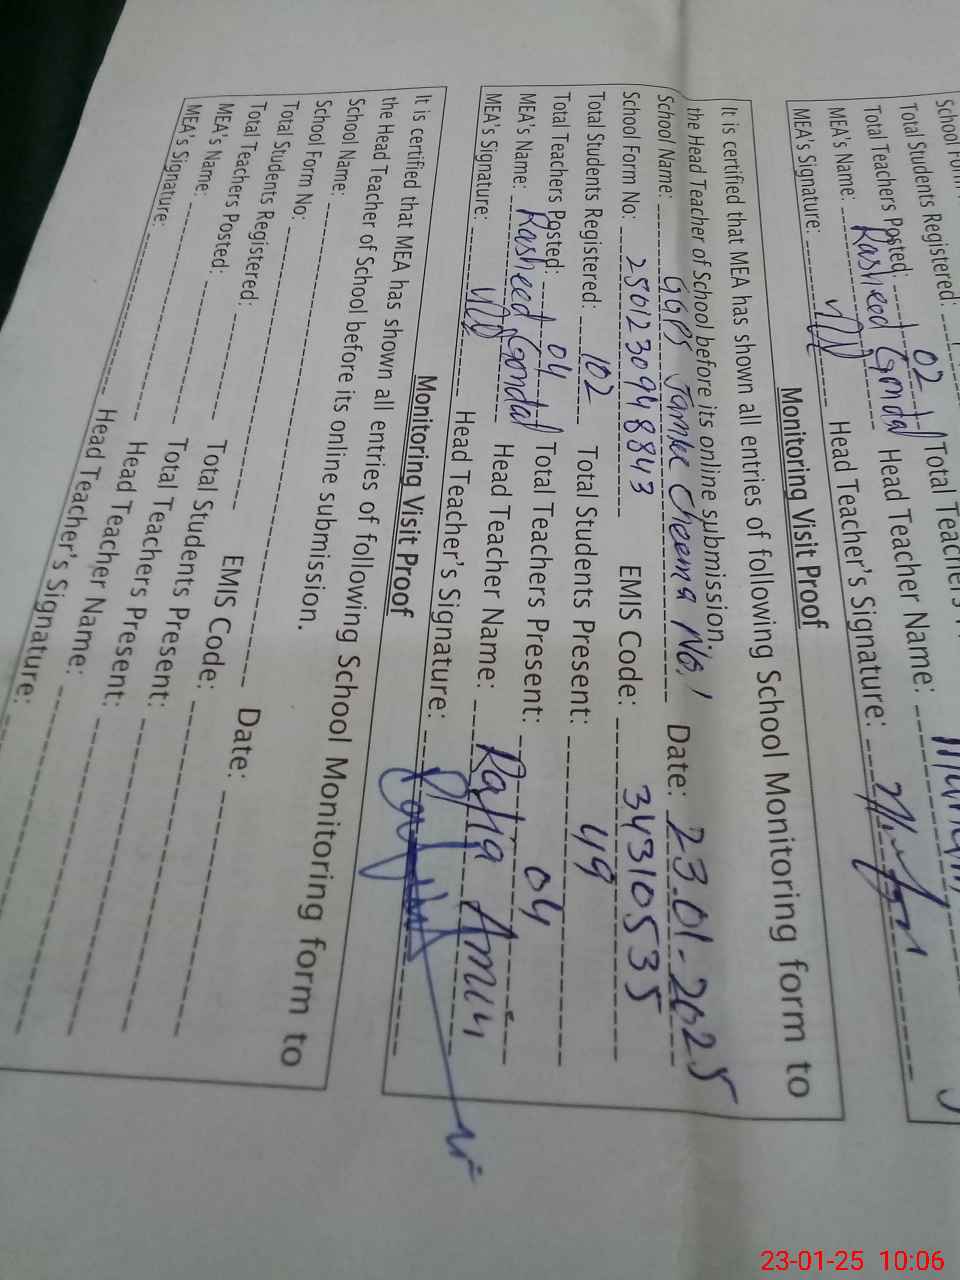 School Form
Total Students Registered:
Total Teachers Posted: 02 Total Teachers
MEA's Name: Rasheed Gondal Head Teacher Name:
MEA's Signature: Head Teacher's Signature:
Monitoring Visit Proof
It is certified that MEA has shown all entries of following School Monitoring form to
the Head Teacher of School before its online submission.
School Name: GGPS Jamke Cheema No. 1 Date: 23.01-2025
School Form No: 2501230948843 EMIS Code: 34310535
Total Students Registered: 102 Total Students Present: 49
Total Teachers Posted: 04 Total Teachers Present: 04
MEA's Name: Rasheed Gondal Head Teacher Name: Rafia Amin
MEA's Signature: Head Teacher's Signature:
Monitoring Visit Proof
It is certified that MEA has shown all entries of following School Monitoring form to
the Head Teacher of School before its online submission.
School Name: Date:
School Form No: EMIS Code:
Total Students Registered: Total Students Present:
Total Teachers Posted: Total Teachers Present:
MEA's Name: Head Teacher Name:
MEA's Signature: Head Teacher's Signature:
23-01-25 10:06